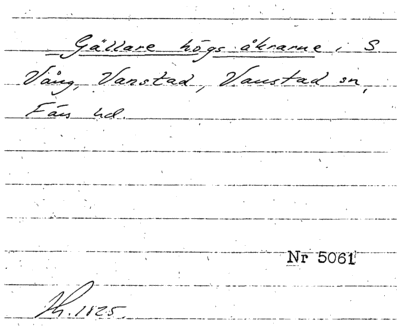 Gällare högs åkrarne, S.
Vång, Vanstad, Vanstad sn,
Färs hd.
Nr 5061
1825.